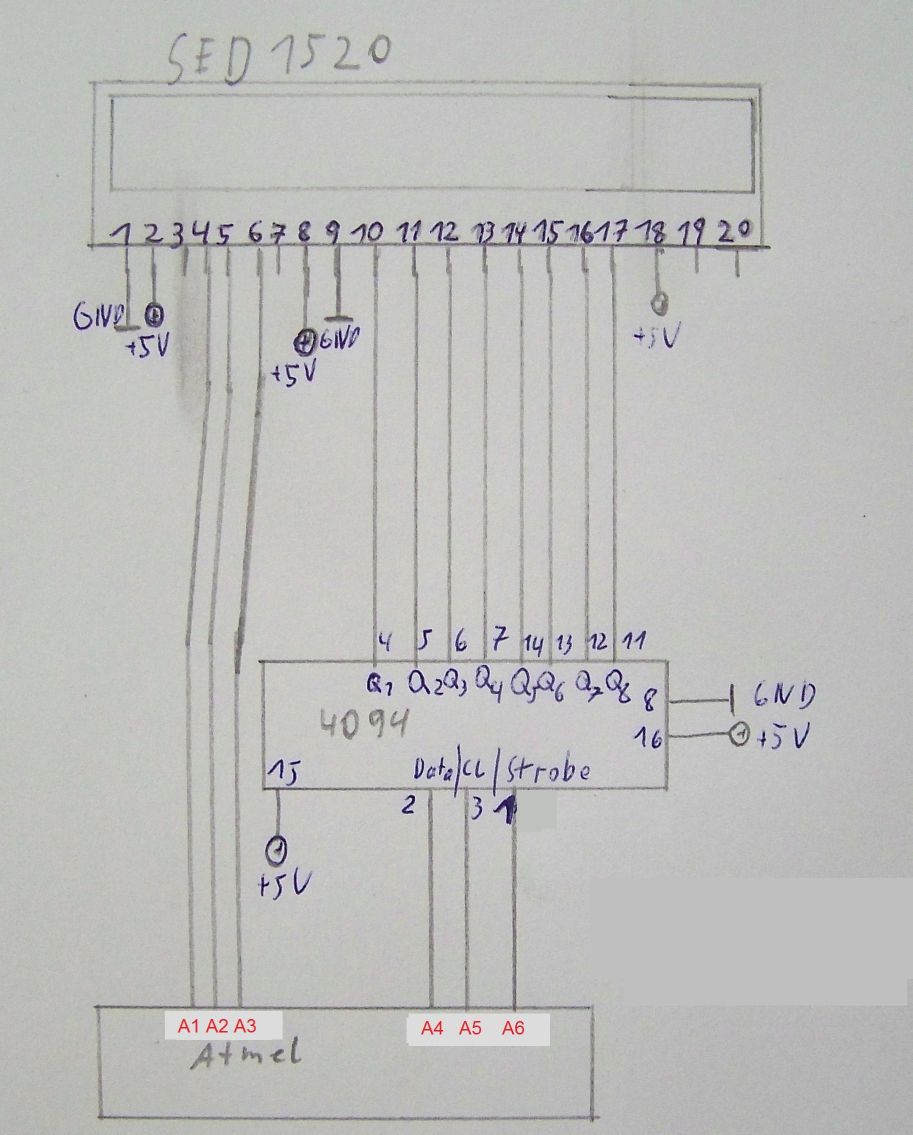 SED 1520
1 2 3 4 5 6 7 8 9 10 11 12 13 14 15 16 17 18 19 20
GND +5V +5V GND +5V
4 5 6 7 14 13 12 11
Q1 Q2 Q3 Q4 Q5 Q6 Q7 Q8 8 GND
4094 16 +5V
15 Data/CL/Strobe
2 3 1
+5V
A1 A2 A3 A4 A5 A6
Atmel